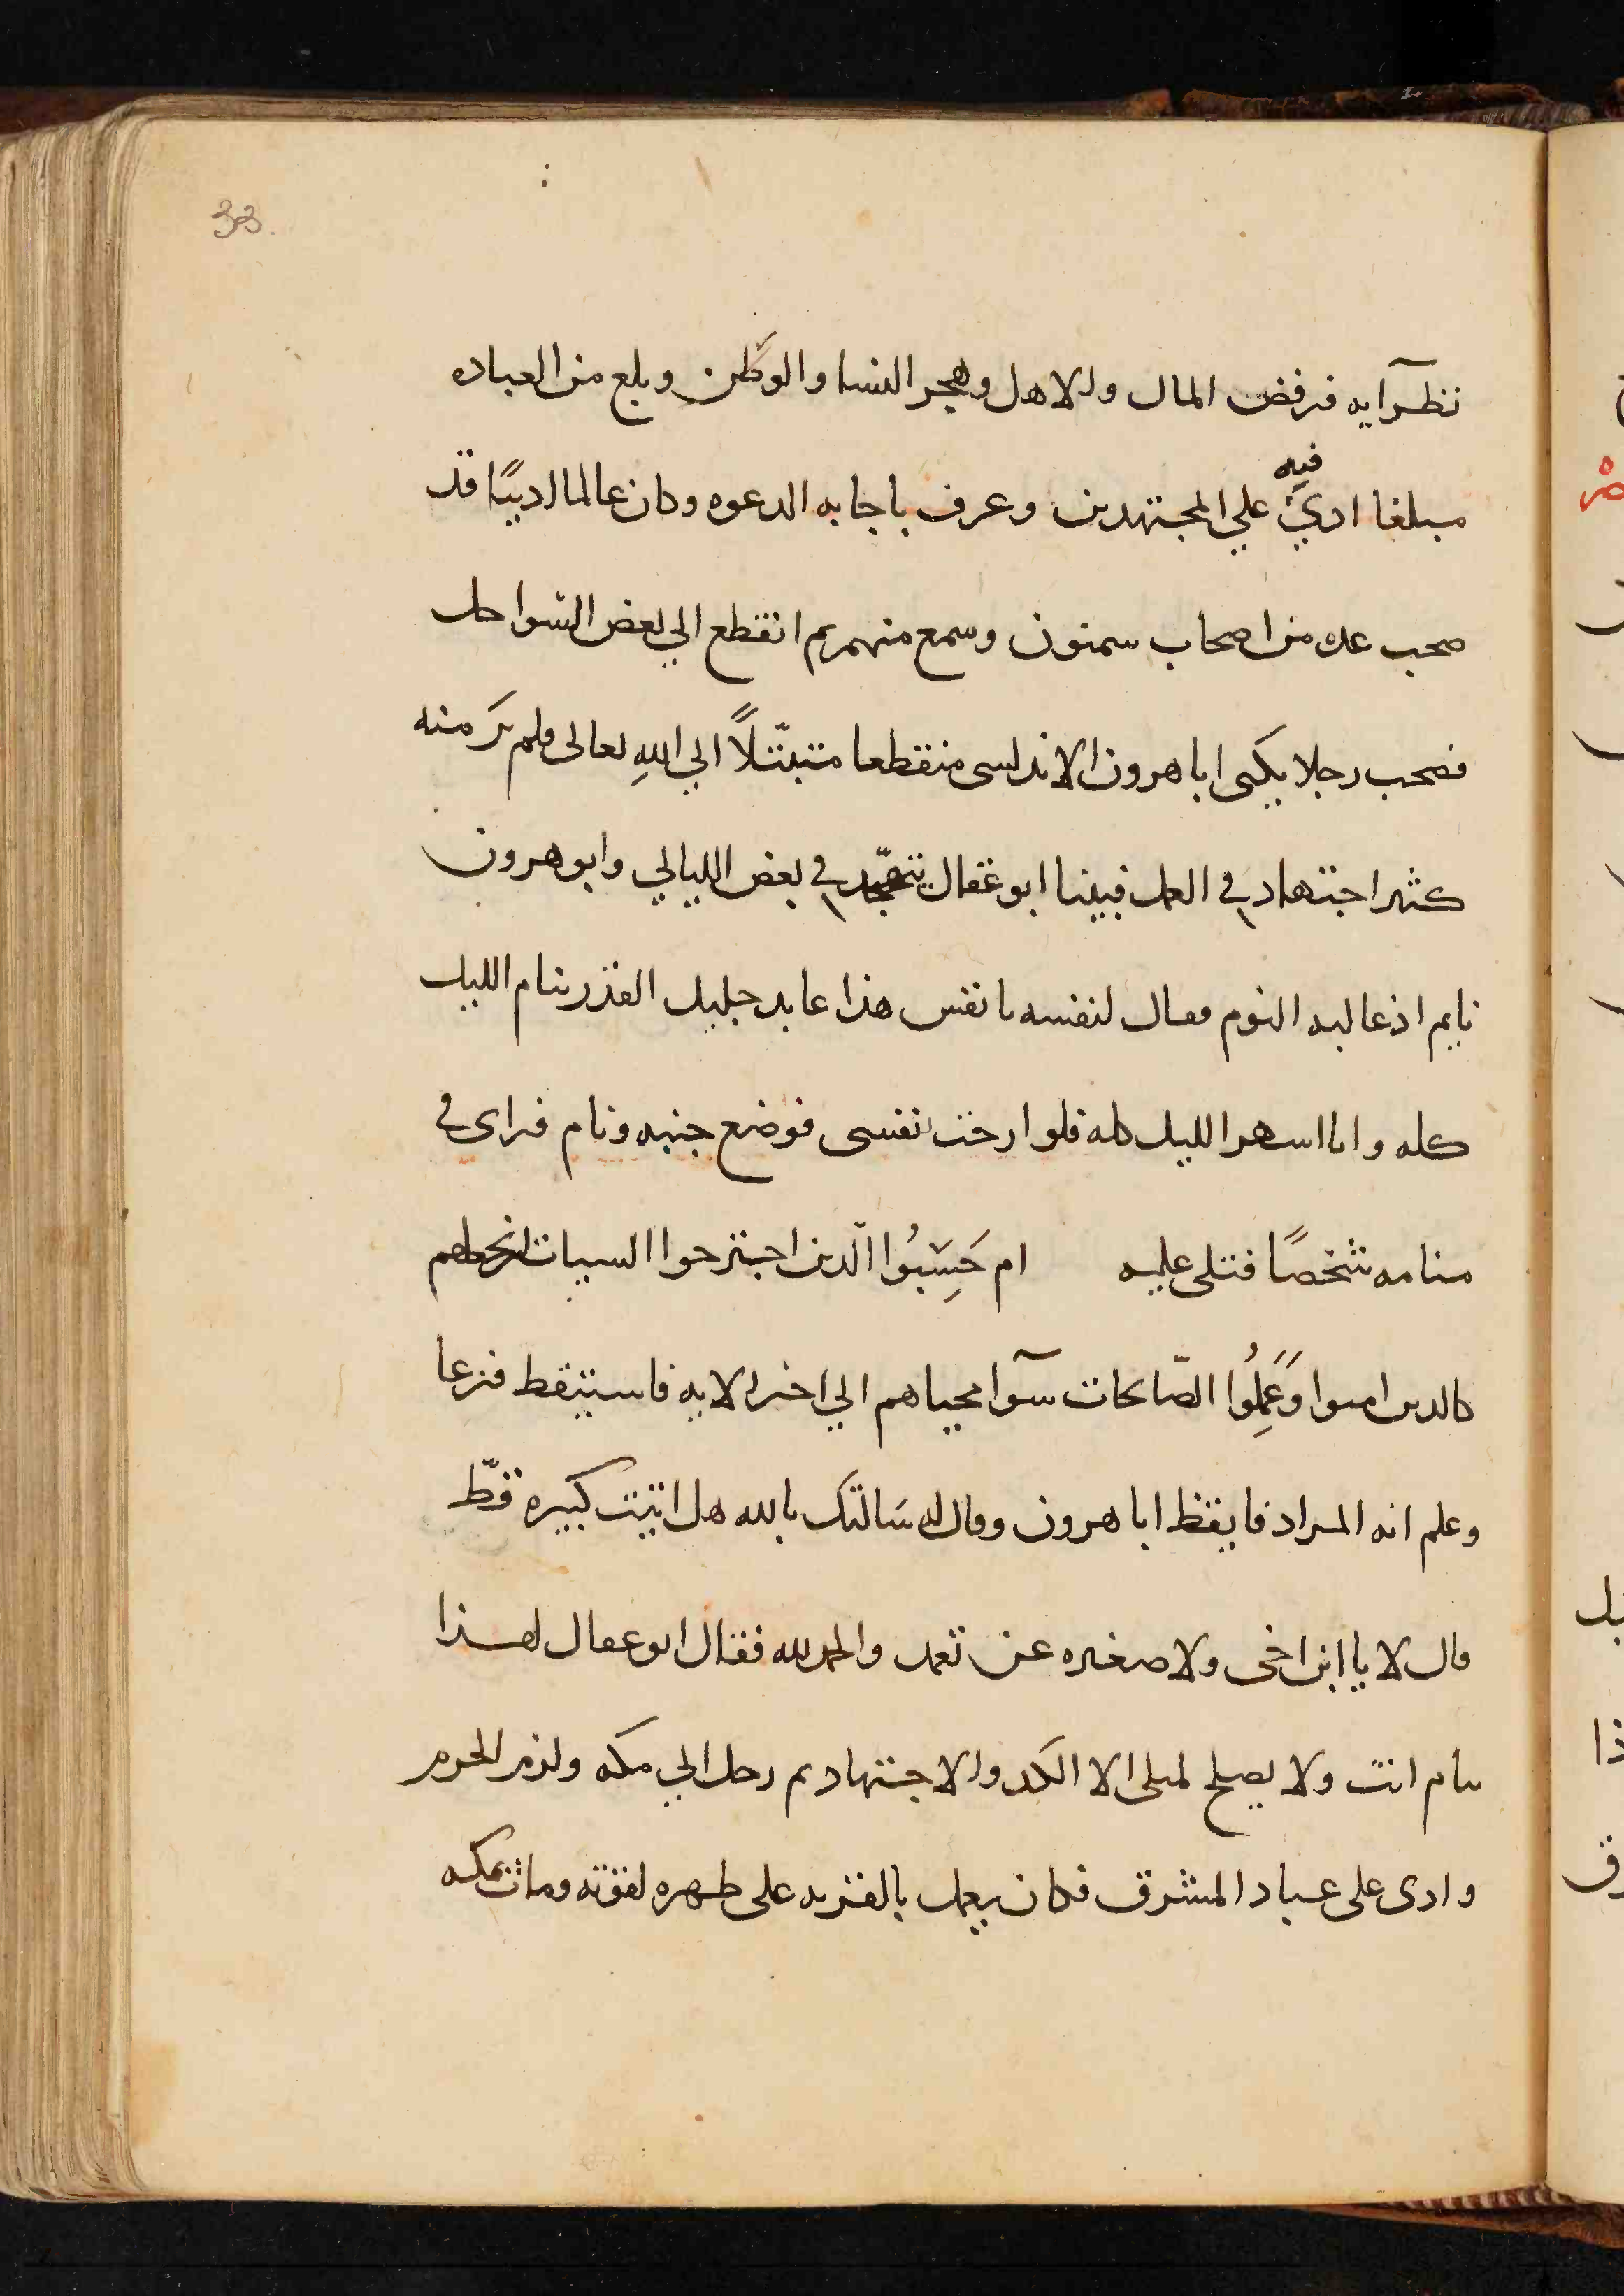 33.
نظرآيه فرفض المال والاهل وهجر النسا والوطن وبلغ من العباده
مبلغا اربيَ فيه علي المجتهدين وعرف باجابه الدعوه وكان عالما اديبًا قد
صحب عده من اصحاب سمنون وسمع منهم ثم انقطع الي بعض السواحل
فصحب رجلا يكنى اباهرون الاندلسى منقطعا متبتّلاً الي اللهِ تعالى فلم يَر منه
كثير اجتهاد في العمل فبينا ابو عقال يتهجّد في بعض الليالي وابو هرون
نايم اذ غالبه النوم فقال لنفسه يا نفس هذا عابد جليل القدر ينام الليل
كله وانا اسهر الليل كله فلو ارحت نفسى فوضع جنبه ونام فراى في
منامه شخصًا فتلى عليه ام حَسِبُوا الّدين اجترحوا السيات ان نجعلهم
كالدين امنوا وَعَمِلُوا الصّالحات سَوآ محياهم الي اخر الايه فاستيقظ فزعا
وعلم انه المراد فايقظ اباهرون وقال له سَالتك بالله هل اتيت كبيره قطّ
قال لا يا ابن اخى ولا صغيره عن تعمد والحمد لله فقال ابو عقال لهذا
تنام انت ولا يصلح لمثلى الا الكد والاجتهاد ثم رحل الي مكه ولزم الحرم
واربى على عباد المشرق فكان يعمل بالقربه على ظهره لقوته ومات بمكه